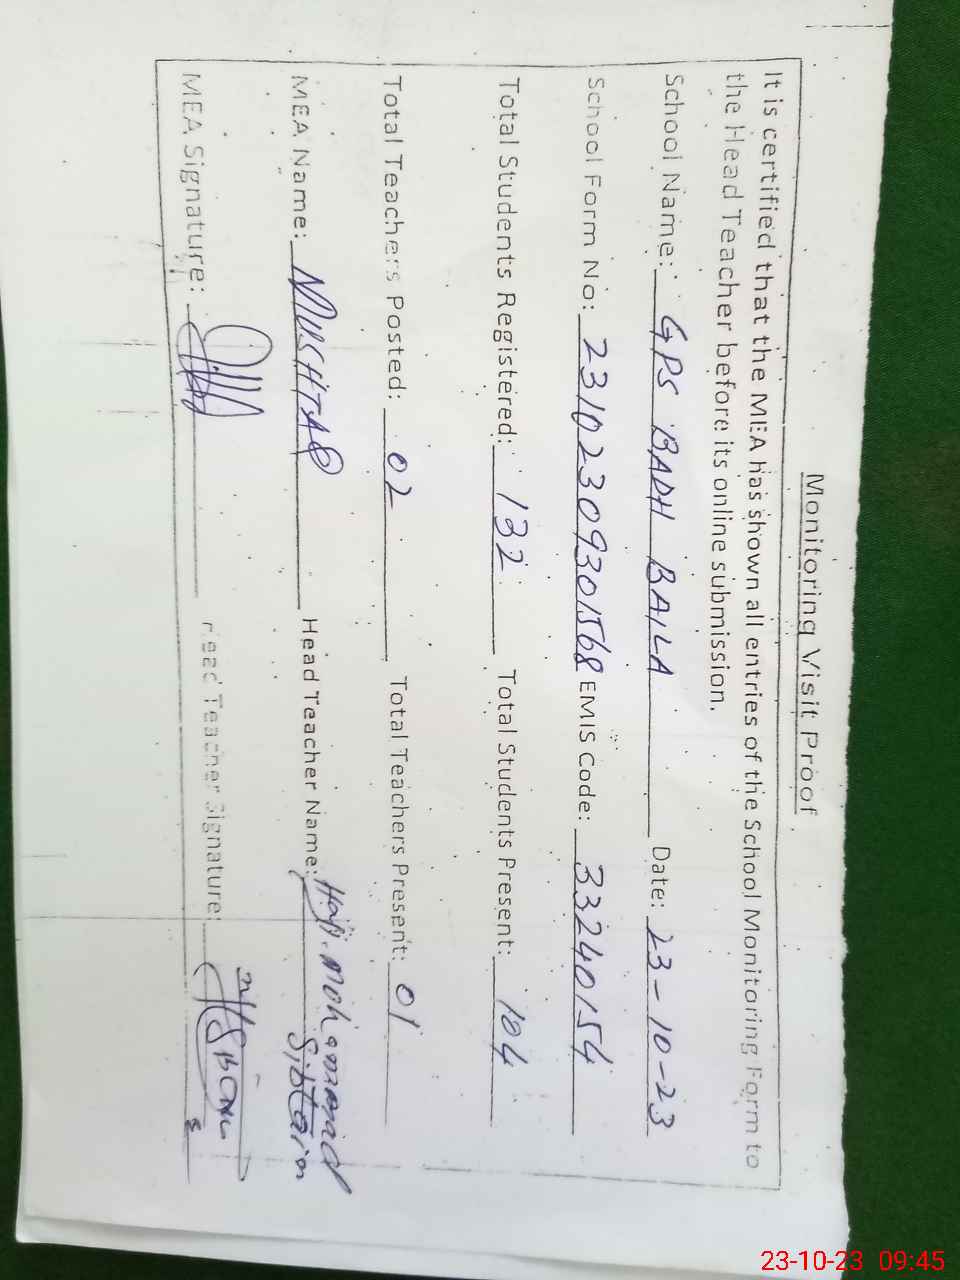 Monitoring Visit Proof
It is certified that the MEA has shown all entries of the School Monitoring Form to
the Head Teacher before its online submission.
School Name: GPS BADH BAILA Date: 23-10-23
School Form No: 23102309301568 EMIS Code: 33240154
Total Students Registered: 132 Total Students Present: 104
Total Teachers Posted: 02 Total Teachers Present: 01
MEA Name: MUSHTAQ Head Teacher Name: Haji Mohammad Sibtain
MEA Signature: Head Teacher Signature:
23-10-23 09:45